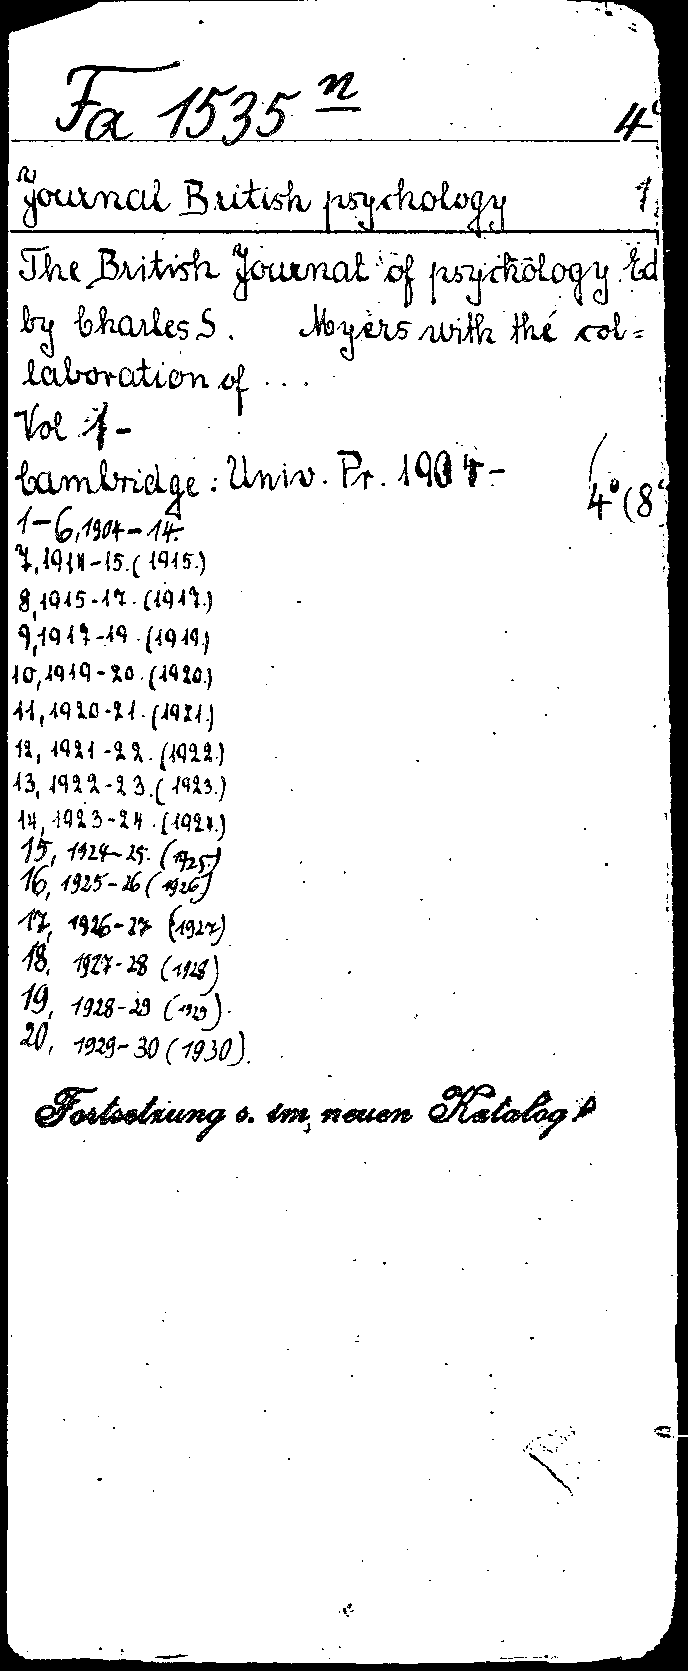 Fa 1535 n 4°
Journal British psychology 1
The British Journal of psychology. Ed
by Charles S. Myers with the col=
laboration of ...
Vol 1-
Cambridge: Univ. Pr. 1904-
4° (8°
1-6, 1904-14.
7, 1914-15. (1915.)
8, 1915-17. (1917.)
9, 1917-19. (1919.)
10, 1919-20. (1920.)
11, 1920-21. (1921.)
12, 1921-22. (1922.)
13, 1922-23. (1923.)
14, 1923-24. (1924.)
15, 1924-25. (1925.)
16, 1925-26 (1926)
17, 1926-27 (1927)
18, 1927-28 (1928)
19, 1928-29 (1929).
20, 1929-30 (1930).
Fortsetzung s. im neuen Katalog!